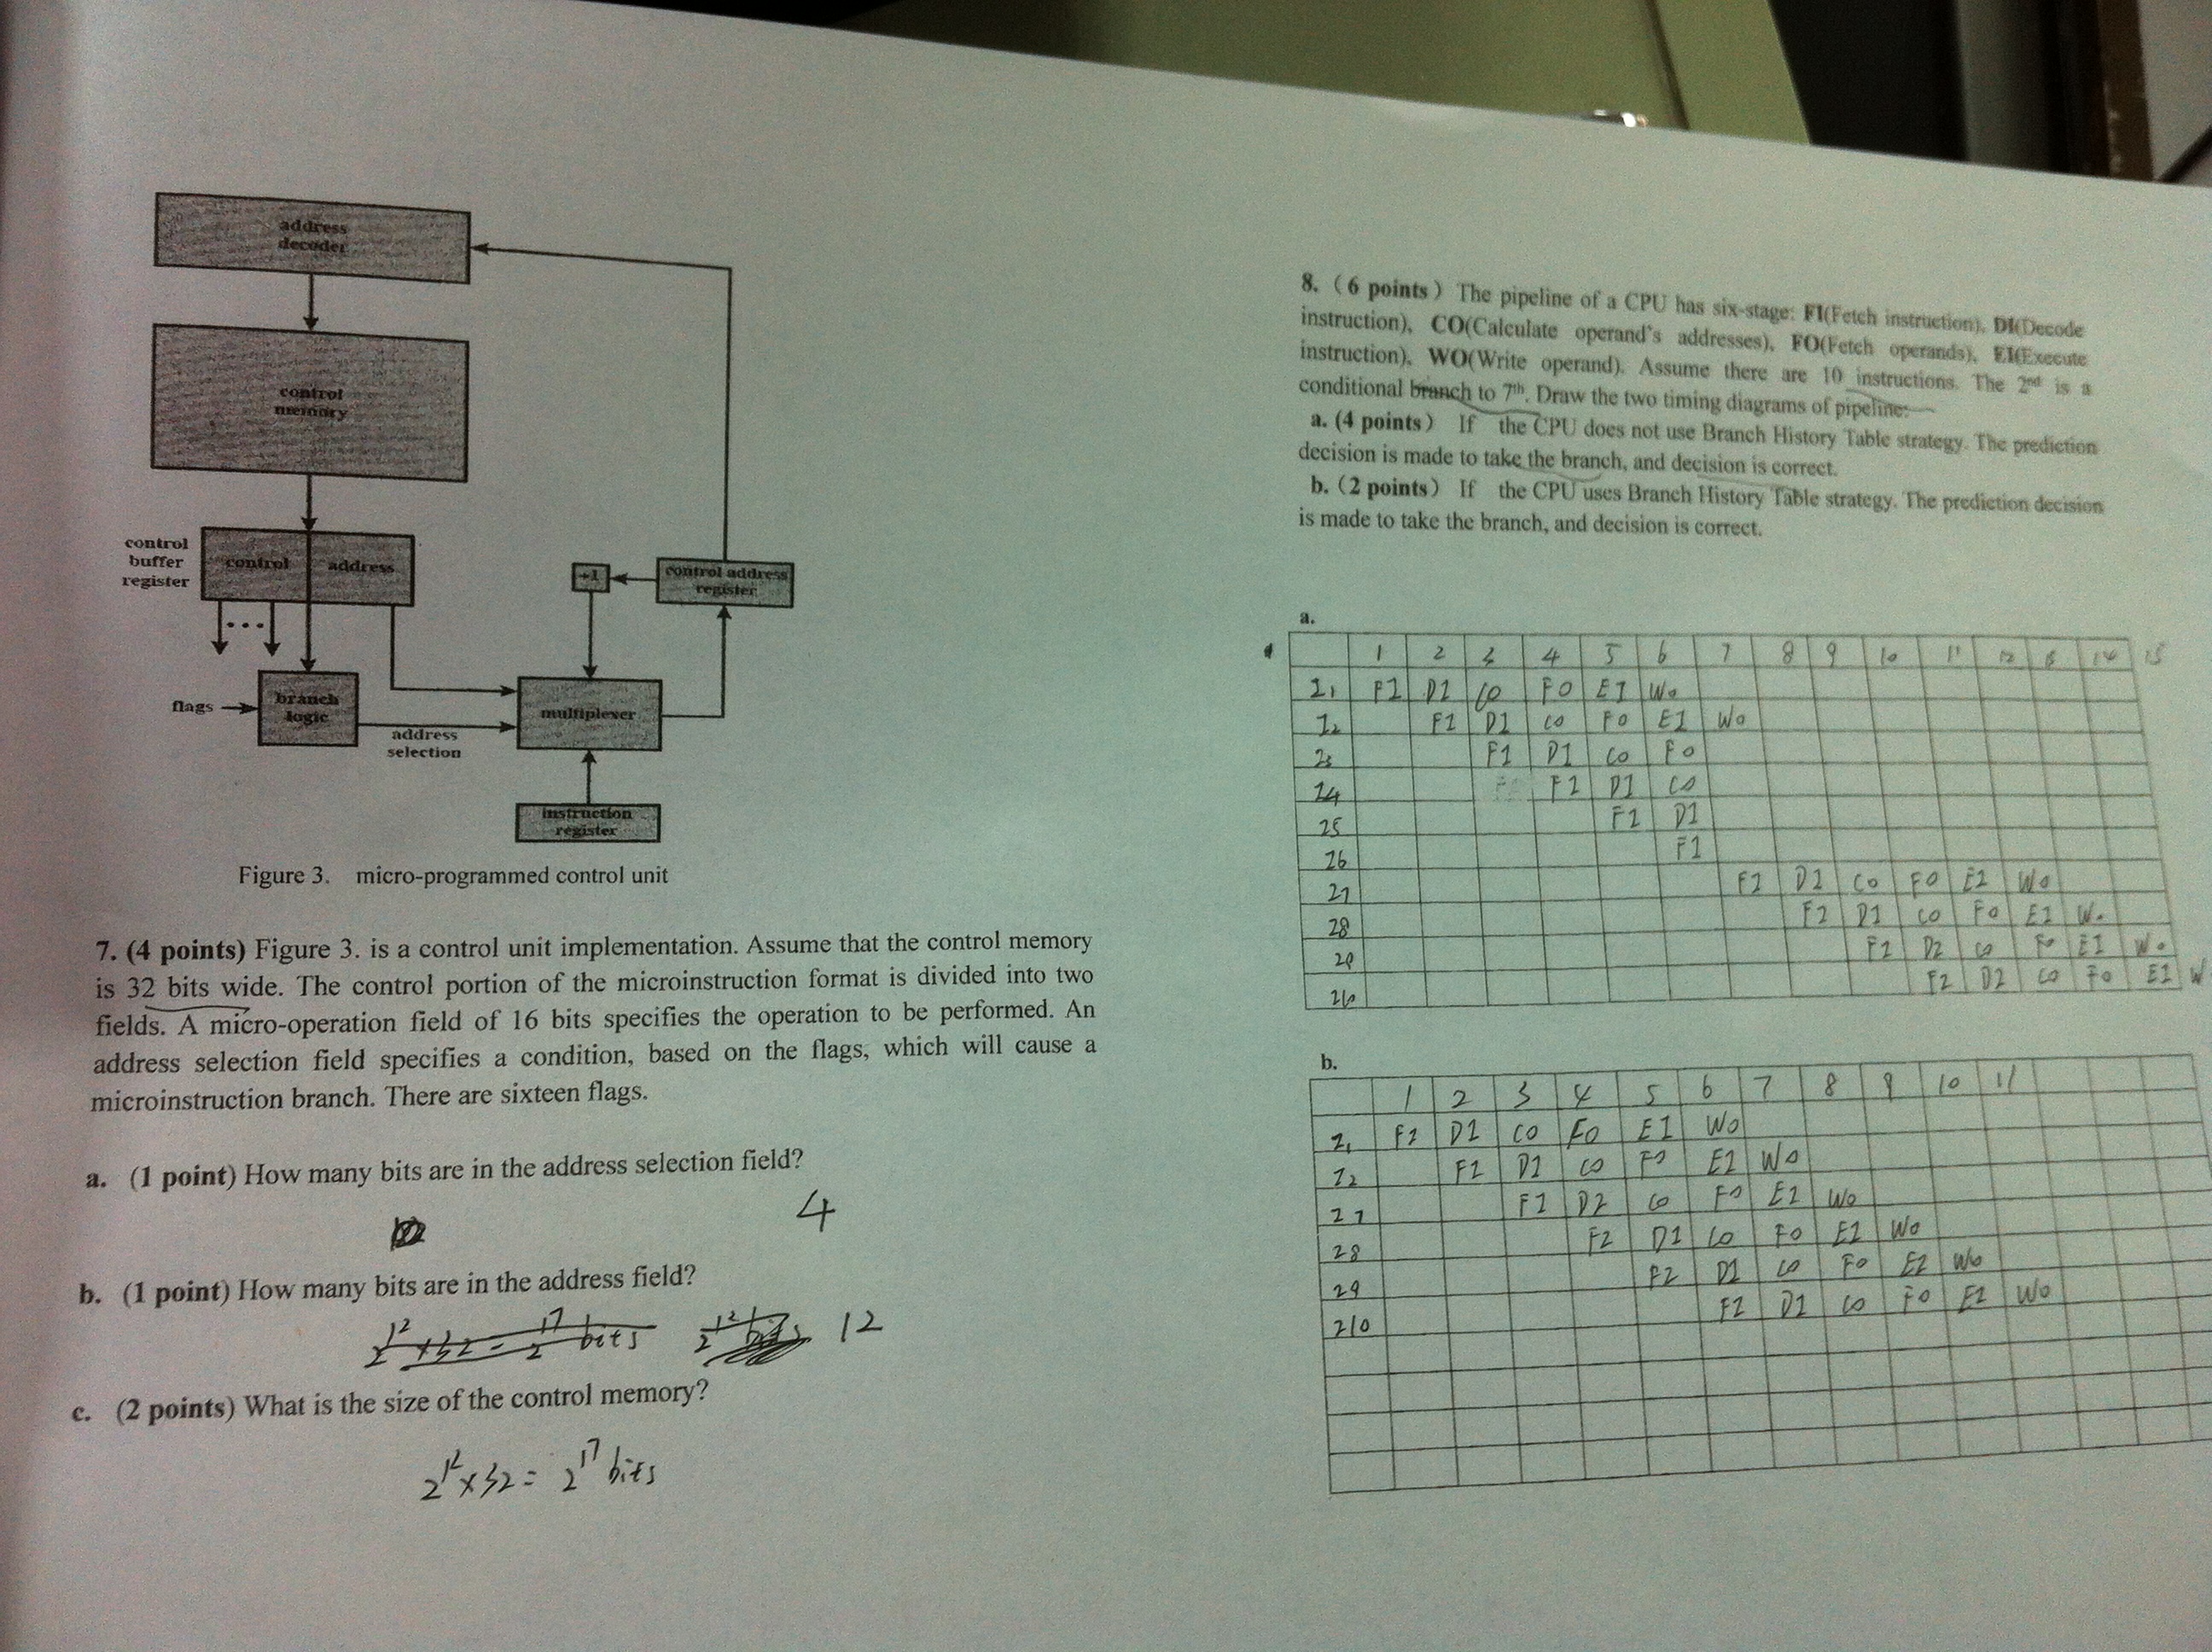 address
decoder
control
memory
control
buffer
register
control address
+1
control address
register
flags
branch
logic
address
selection
multiplexer
instruction
register
Figure 3. micro-programmed control unit
7. (4 points) Figure 3. is a control unit implementation. Assume that the control memory
is 32 bits wide. The control portion of the microinstruction format is divided into two
fields. A micro-operation field of 16 bits specifies the operation to be performed. An
address selection field specifies a condition, based on the flags, which will cause a
microinstruction branch. There are sixteen flags.
a. (1 point) How many bits are in the address selection field?
4
b. (1 point) How many bits are in the address field?
2^12 x32 = 2^17 bits 12
c. (2 points) What is the size of the control memory?
2^12 x 32 = 2^17 bits
8. (6 points) The pipeline of a CPU has six-stage: FI(Fetch instruction), DI(Decode
instruction), CO(Calculate operand's addresses), FO(Fetch operands), EI(Execute
instruction), WO(Write operand). Assume there are 10 instructions. The 2nd is a
conditional branch to 7th. Draw the two timing diagrams of pipeline:
a. (4 points) If the CPU does not use Branch History Table strategy. The prediction
decision is made to take the branch, and decision is correct.
b. (2 points) If the CPU uses Branch History Table strategy. The prediction decision
is made to take the branch, and decision is correct.
a.
1 2 3 4 5 6 7 8 9 10 11 12 13 14 15
I1 FI DI CO FO EI WO
I2 FI DI CO FO EI WO
I3 FI DI CO FO
I4 FI DI CO
I5 FI DI
I6 FI
I7 FI DI CO FO EI WO
I8 FI DI CO FO EI WO
I9 FI DI CO FO EI WO
I10 FI DI CO FO EI W
b.
1 2 3 4 5 6 7 8 9 10 11
I1 FI DI CO FO EI WO
I2 FI DI CO FO EI WO
I7 FI DI CO FO EI WO
I8 FI DI CO FO EI WO
I9 FI DI CO FO EI WO
I10 FI DI CO FO EI WO